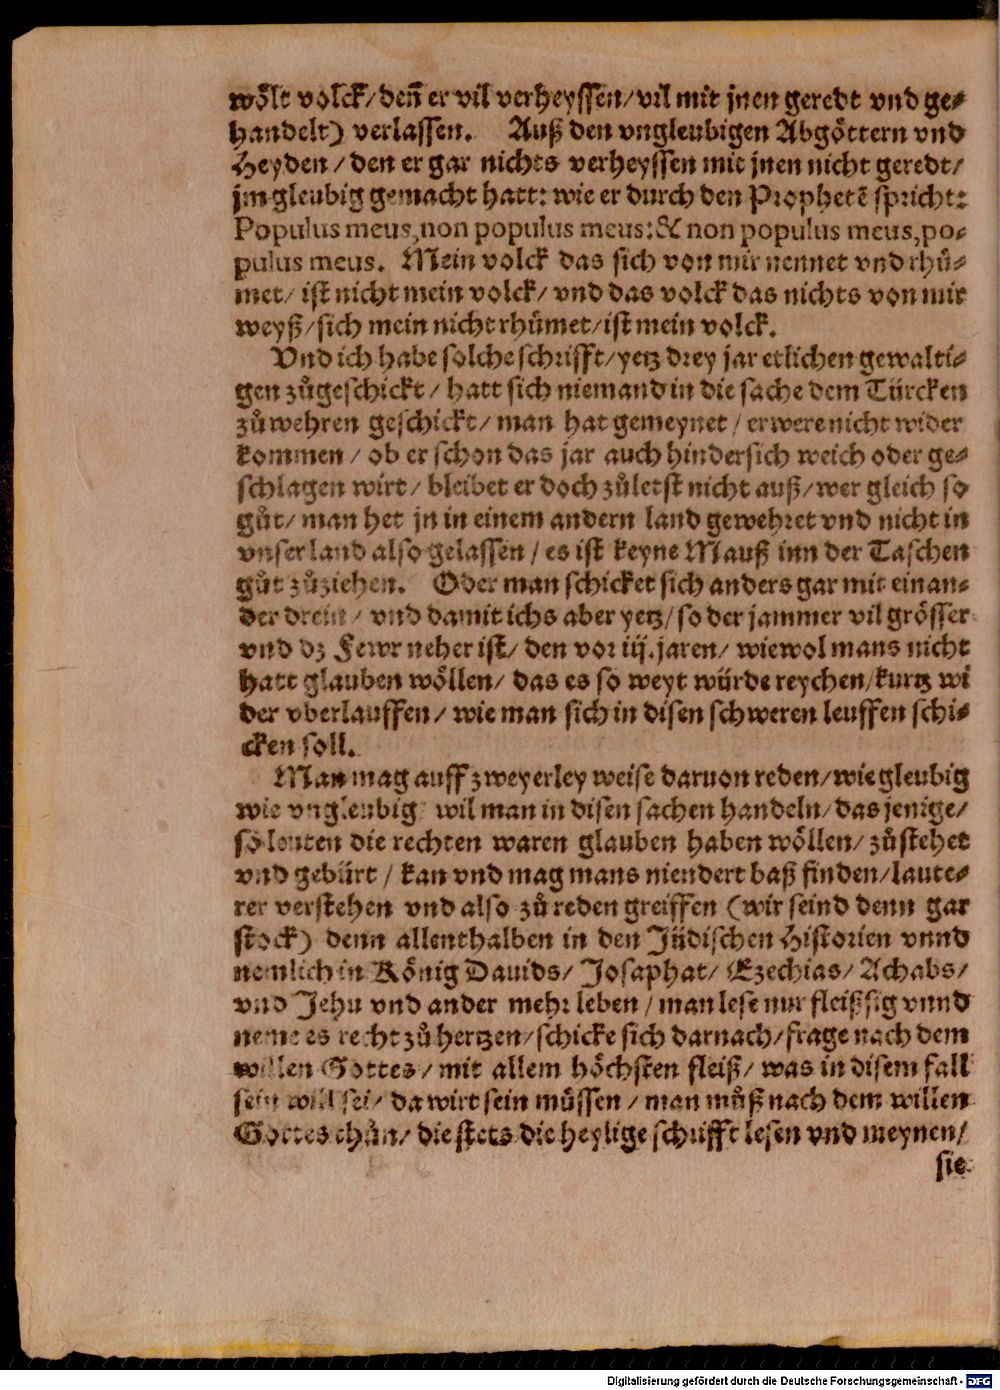 woͤlt volck/ deñ er vil verheyssen/ vil mit jnen geredt vnd ge⸗
handelt) verlassen. Auß den vngleubigen Abgoͤttern vnd
Heyden / den er gar nichts verheyssen mit jnen nicht geredt/
jm gleubig gemacht hatt: wie er durch den Prophetẽ spricht:
Populus meus, non populus meus: & non populus meus, po⸗
pulus meus. Mein volck das sich von mir nennet vnd rhuͤ⸗
met/ ist nicht mein volck/ vnd das volck das nichts von mir
weyß/ sich mein nicht rhuͤmet/ ist mein volck.
Vnd ich habe solche schrifft/ yetz drey jar etlichen gewalti⸗
gen zuͦgeschickt / hatt sich niemand in die sache dem Tuͤrcken
zuͦ wehren geschickt/ man hat gemeynet / er were nicht wider
kommen / ob er schon das jar auch hindersich weich oder ge⸗
schlagen wirt / bleibet er doch zuͦletst nicht auß/ wer gleich so
guͦt/ man het jn in einem andern land gewehret vnd nicht in
vnser land also gelassen / es ist keyne Mauß inn der Taschen
guͦt zuͦziehen. Oder man schicket sich anders gar mit einan⸗
der drein / vnd damit ichs aber yetz/ so der jammer vil groͤsser
vnd dz Fewr neher ist/ den vor iij. jaren/ wiewol mans nicht
hatt glauben woͤllen/ das es so weyt wuͤrde reychen/ kurtz wi
der vberlauffen/ wie man sich in disen schweren leuffen schi⸗
cken soll.
Man mag auff zweyerley weise daruon reden/ wie gleubig
wie vngleubig wil man in disen sachen handeln/ das jenige/
so leuten die rechten waren glauben haben woͤllen/ zuͦstehet
vnd gebuͤrt / kan vnd mag mans niendert baß finden/ laute⸗
rer verstehen vnd also zuͦ reden greiffen (wir seind denn gar
stock) denn allenthalben in den Juͤdischen Historien vnnd
nemlich in Koͤnig Dauids/ Josaphat/ Ezechias/ Achabs/
vnd Jehu vnd ander mehr leben / man lese nur fleißsig vnnd
neme es recht zuͦ hertzen/ schicke sich darnach/ frage nach dem
willen Gottes / mit allem hoͤchsten fleiß/ was in disem fall
sein will sei/ da wirt sein muͤssen / man muͦß nach dem willen
Gottes thuͦn/ die stets die heylige schrifft lesen vnd meynen/
sie
Digitalisierung gefördert durch die Deutsche Forschungsgemeinschaft - DFG